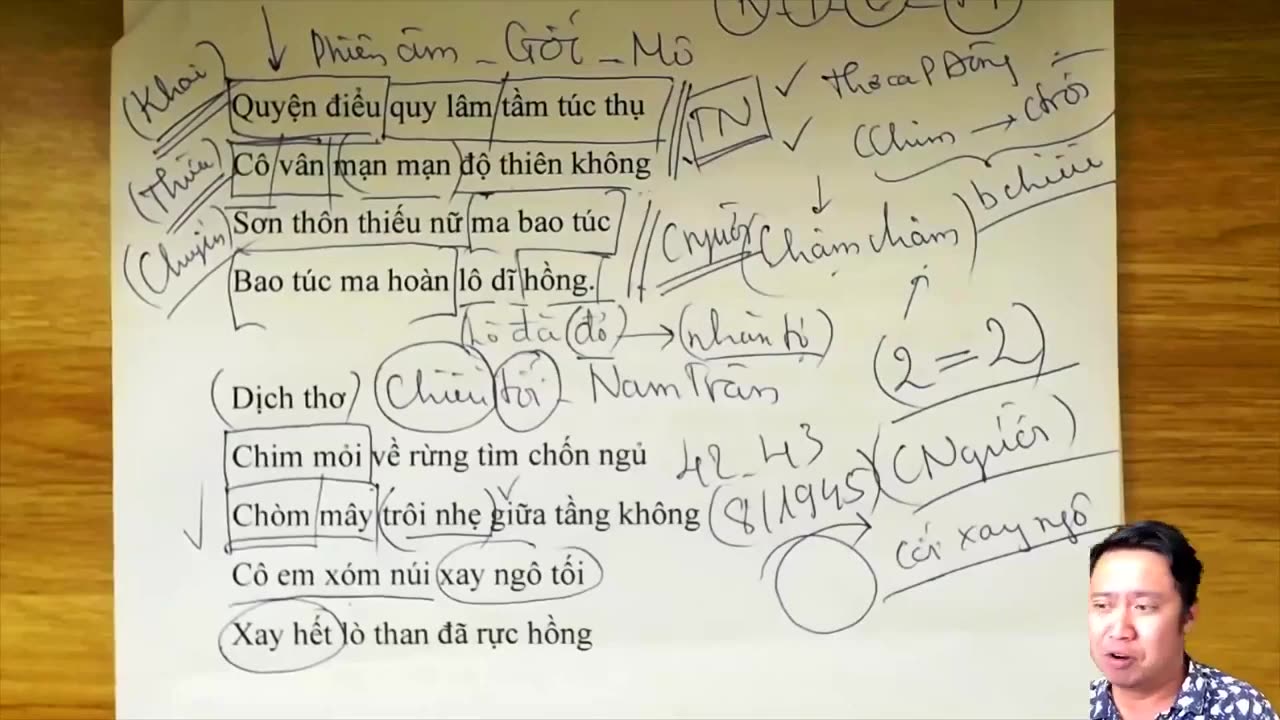 Phiên âm - Giới - Mô
(Khai) Quyện điểu quy lâm tầm túc thụ // TN ✓ thơ ca P Đông
(Thừa) Cô vân mạn mạn độ thiên không ✓ (Chim → trời
(Chuyển) Sơn thôn thiếu nữ ma bao túc // (Người (Chầm chậm) b chiều
Bao túc ma hoàn lô dĩ hồng.
Lò đã (đỏ) → (nhãn tự)
(2 = 2)
(Dịch thơ) (Chiều tối) - Nam Trân
Chim mỏi về rừng tìm chốn ngủ 42-43 (Người)
Chòm mây trôi nhẹ giữa tầng không (8/1945)
Cô em xóm núi xay ngô tối cối xay ngô
Xay hết lò than đã rực hồng